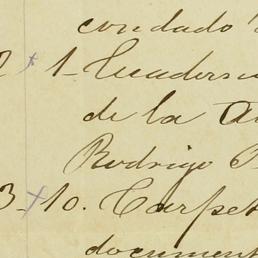 condado
2 x 1- Cuaderno
de la
Rodrigo
3- x 10. Carpet
document